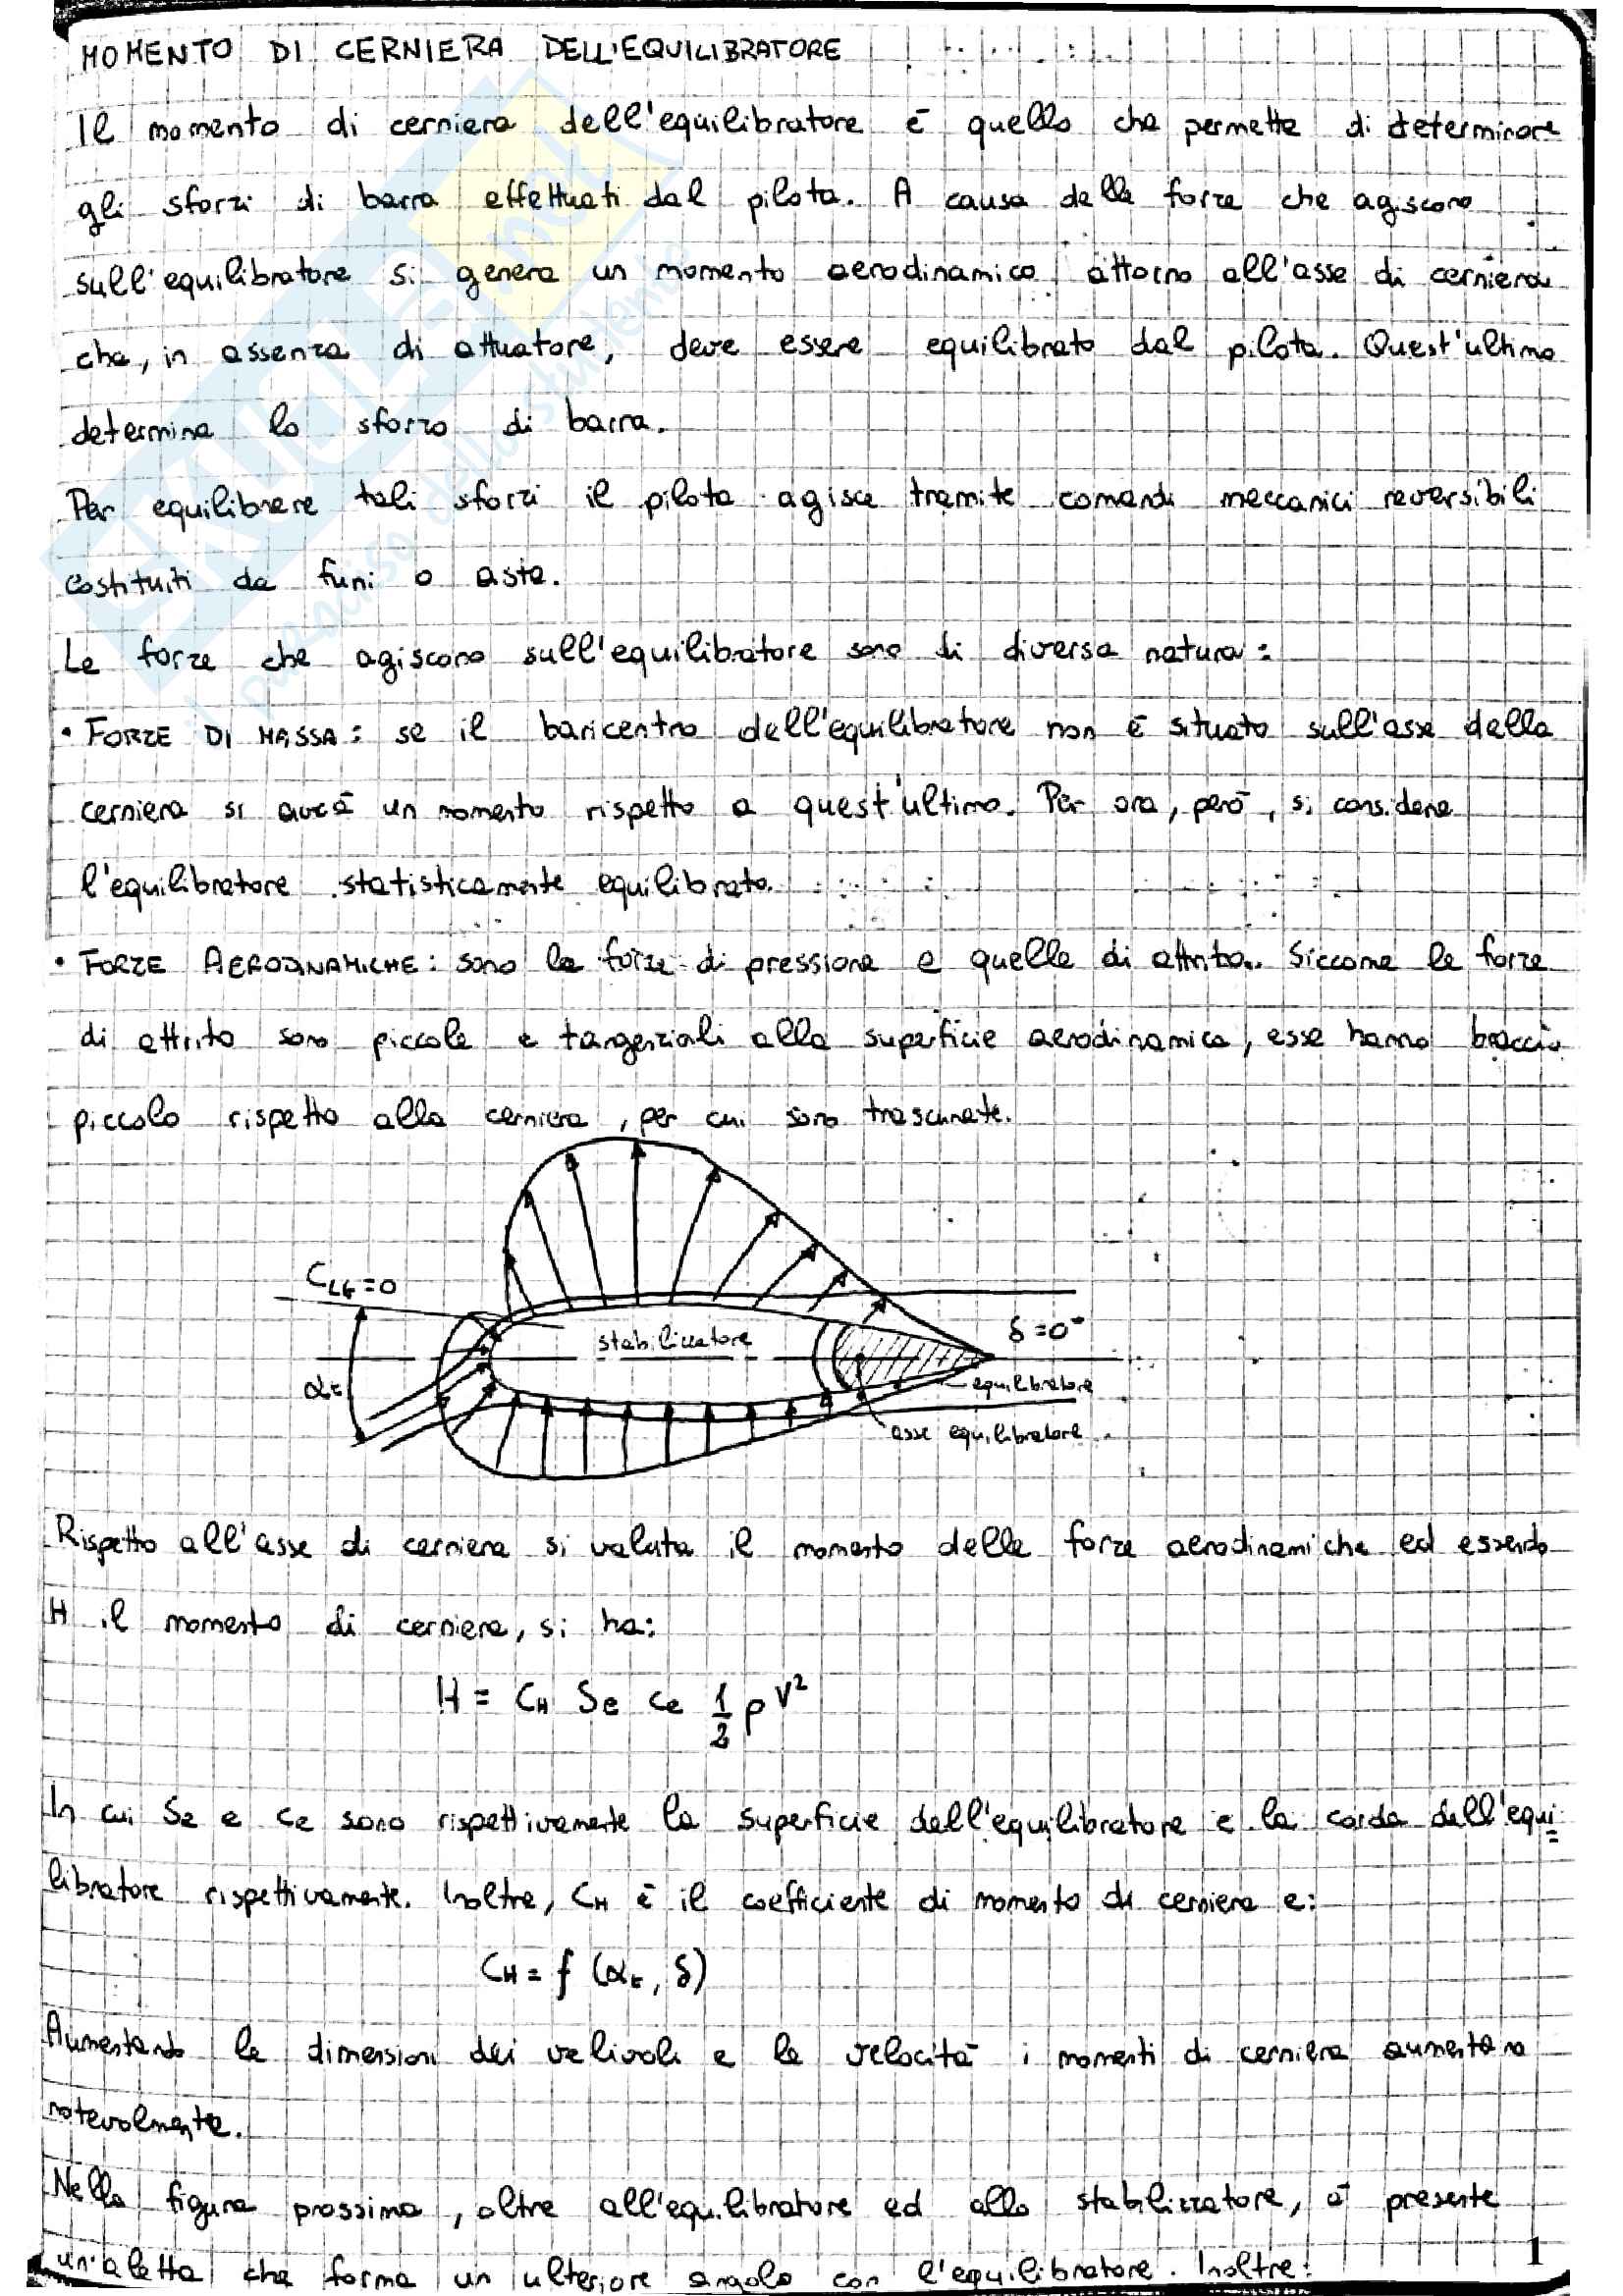 MOMENTO DI CERNIERA DELL'EQUILIBRATORE
Il momento di cerniera dell'equilibratore è quello che permette di determinare
gli sforzi di barra effettuati dal pilota. A causa delle forze che agiscono
sull'equilibratore si genera un momento aerodinamico attorno all'asse di cerniera
che, in assenza di attuatore, deve essere equilibrato dal pilota. Quest'ultimo
determina lo sforzo di barra.
Per equilibrare tali sforzi il pilota agisce tramite comandi meccanici reversibili
costituiti da funi o aste.
Le forze che agiscono sull'equilibratore sono di diversa natura:
• FORZE DI MASSA: se il baricentro dell'equilibratore non è situato sull'asse della
cerniera si avrà un momento rispetto a quest'ultimo. Per ora, però, si considera
l'equilibratore statisticamente equilibrato.
• FORZE AERODINAMICHE: sono le forze di pressione e quelle di attrito. Siccome le forze
di attrito sono piccole e tangenziali alla superficie aerodinamica, esse hanno braccio
piccolo rispetto alla cerniera, per cui sono trascurate.
C_Lt=0
stabilizzatore
δ=0°
αt
equilibratore
asse equilibratore
Rispetto all'asse di cerniera si valuta il momento delle forze aerodinamiche ed essendo
H il momento di cerniera, si ha:
H = C_H Se ce 1/2 ρ V²
In cui Se e ce sono rispettivamente la superficie dell'equilibratore e la corda dell'equi=
libratore rispettivamente. Inoltre, C_H è il coefficiente di momento di cerniera e:
C_H = f (αt, δ)
Aumentando le dimensioni dei velivoli e le velocità i momenti di cerniera aumentano
notevolmente.
Nella figura prossima, oltre all'equilibratore ed allo stabilizzatore, è presente
un'aletta che forma un ulteriore angolo con l'equilibratore. Inoltre:
1